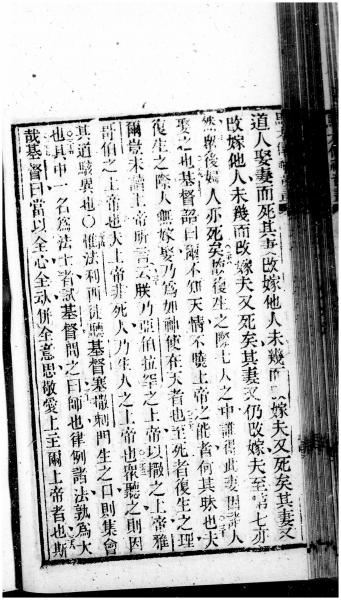 道人娶妻而死其妻改嫁他人未幾而改嫁夫又死矣其妻又
改嫁他人未幾而改嫁夫又死矣其妻又仍改嫁夫至第七亦
然與後婦人亦死矣故復生之際七人之中誰得此妻因諸人
娶之也基督詔曰爾不知天情不曉上帝之能者何其昧也夫
復生之際人無嫁娶乃為如神使在天者也至死者復生之理
爾豈未讀上帝所言云朕乃亞伯拉罕之上帝以撒之上帝雅
哥伯之上帝也夫上帝非死人乃生人之上帝也眾聽之則因
其道駭異也〇惟法利西徒聽基督塞撒門生之口則集會
也其中一名為法士者試基督問之曰師也律例諸法孰為大
哉基督曰當以全心全動併全意思敬愛上主爾上帝者也斯